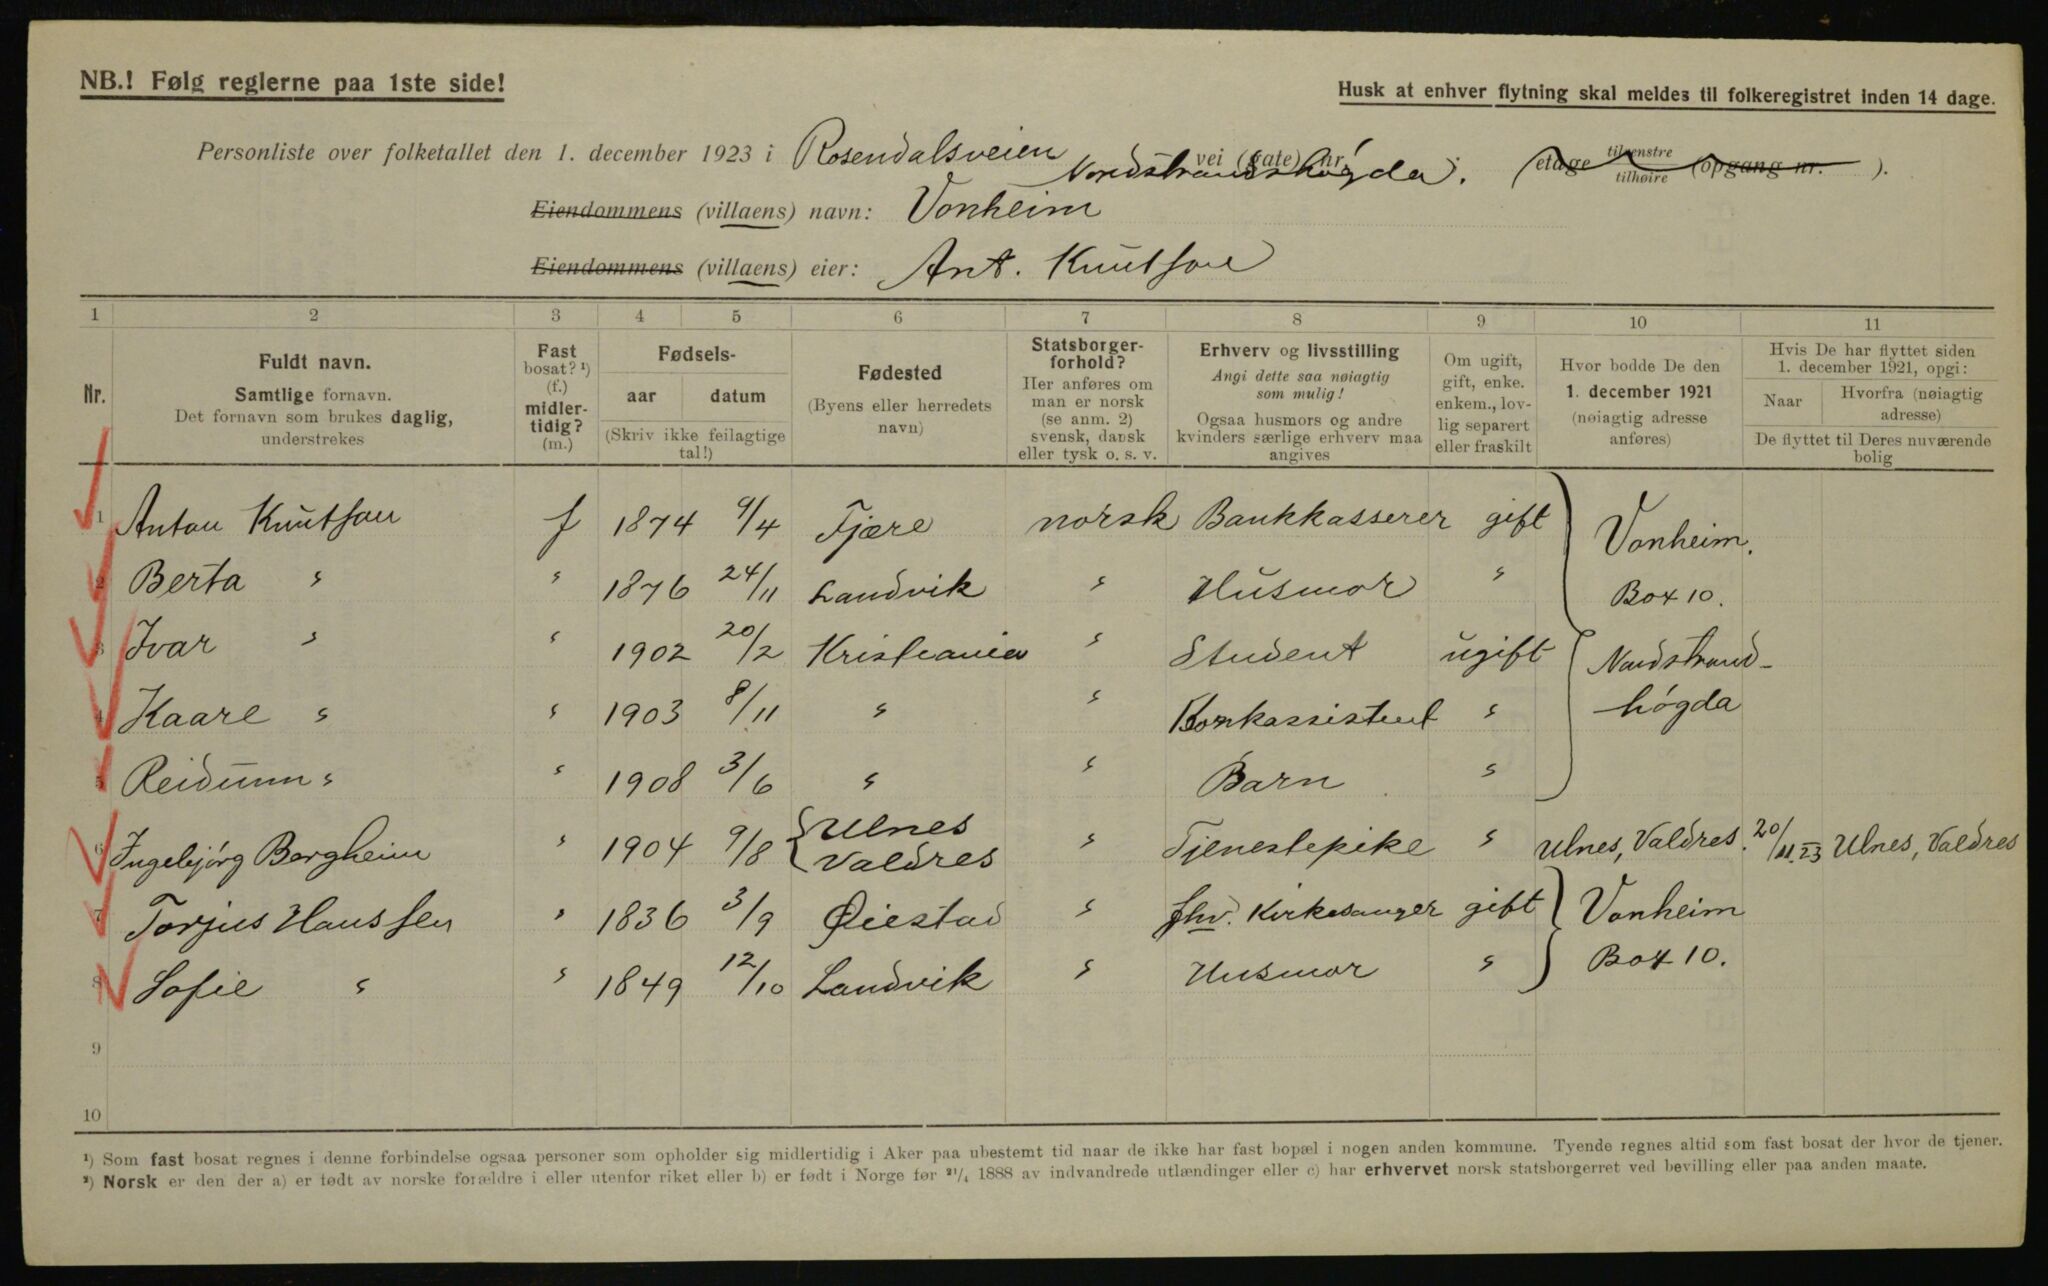 NB.! Følg reglerne paa 1ste side!
Husk at enhver flytning skal meldes til folkeregistret inden 14 dage.
Personliste over folketallet den 1. december 1923 i Rosendalsveien vei (gate) nr. Nordstrandshøgda. (etage tilvenstre tilhøire (opgang nr. ).
Eiendommens (villaens) navn: Vonheim
Eiendommens (villaens) eier: Ant. Knutson
1 2 3 4 5 6 7 8 9 10 11
Nr.
Fuldt navn.
Samtlige fornavn.
Det fornavn som brukes daglig,
understrekes
Fast
bosat? ¹)
(f.)
midler-
tidig?
(m.)
Fødsels-
aar datum
(Skriv ikke feilagtige
tal!)
Fødested
(Byens eller herredets
navn)
Statsborger-
forhold?
Her anføres om
man er norsk
(se anm. 2)
svensk, dansk
eller tysk o. s. v.
Erhverv og livsstilling
Angi dette saa nøiagtig
som mulig!
Ogsaa husmors og andre
kvinders særlige erhverv maa
angives
Om ugift,
gift, enke.
enkem., lov-
lig separert
eller fraskilt
Hvor bodde De den
1. december 1921
(nøiagtig adresse
anføres)
Hvis De har flyttet siden
1. december 1921, opgi:
Naar
Hvorfra (nøiagtig
adresse)
De flyttet til Deres nuværende
bolig
1 Anton Knutson f 1874 9/4 Fjære norsk Bankkasserer gift Vonheim.
2 Berta " " 1876 24/11 Landvik " Husmor " Box 10.
3 Ivar " " 1902 20/2 Kristiania " Student ugift Nordstrand-
4 Kaare " " 1903 8/11 " " Bankassistent " høgda
5 Reidunn " " 1908 3/6 " " Barn "
6 Ingebjørg Bergheim " 1904 9/8 Ulnes Valdres " Tjenestepike " Ulnes, Valdres. 20/11.23 Ulnes, Valdres
7 Torjus Hanssen " 1836 3/9 Øiestad " fhv. Kirkesanger gift Vonheim
8 Sofie " " 1849 12/10 Landvik " Husmor " Box 10.
9
10
¹) Som fast bosat regnes i denne forbindelse ogsaa personer som opholder sig midlertidig i Aker paa ubestemt tid naar de ikke har fast bopæl i nogen anden kommune. Tyende regnes altid som fast bosat der hvor de tjener.
²) Norsk er den der a) er født av norske forældre i eller utenfor riket eller b) er født i Norge før ²¹/₄ 1888 av indvandrede utlændinger eller c) har erhvervet norsk statsborgerret ved bevilling eller paa anden maate.